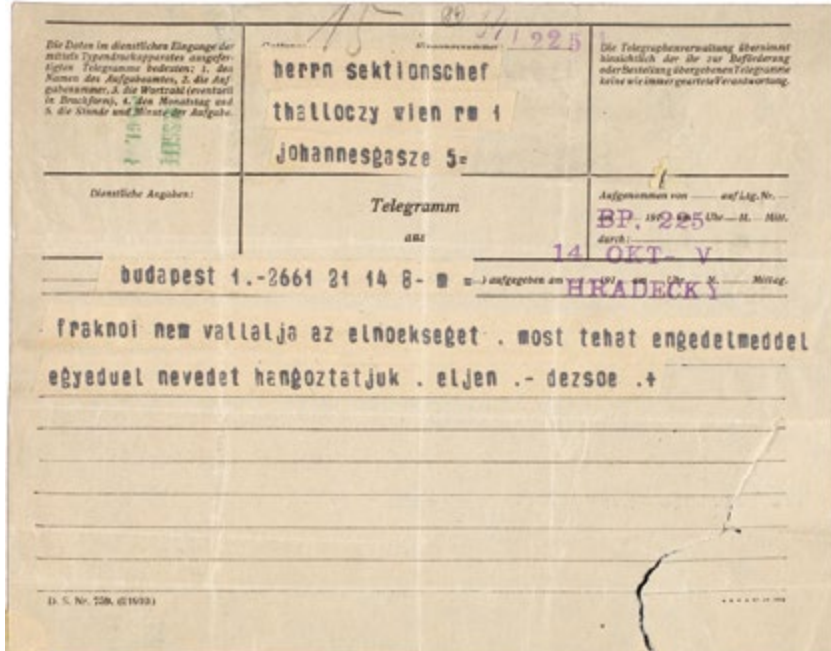 15
225
Die Daten im dienstlichen Eingange der
mittels Typendruckapparates ausgefer-
tigten Telegramme bedeuten: 1. den
Namen des Aufgabeamtes, 2. die Auf-
gabenummer, 3. die Wortzahl (eventuell
in Bruchform), 4. den Monatstag und
5. die Stunde und Minute der Aufgabe.
herrn sektionschef
thalloczy wien rm 1
johannesgasze 5=
Die Telegraphenverwaltung übernimmt
hinsichtlich der ihr zur Beförderung
oder Bestellung übergebenen Telegramme
keine wie immer geartete Verantwortung.
Dienstliche Angaben:
Telegramm
aus
Aufgenommen von auf Ltg. Nr.
191 Uhr M. Mitt.
durch:
BP. 225
14 OKT- V
HRADECKY
budapest 1.-2661 21 14 8- m =
) aufgegeben am 191 Uhr M. Mittag.
fraknoi nem vallalja az elnoekseget . most tehat engedelmeddel
egyeduel nevedet hangoztatjuk . eljen .- dezsoe .+
D. S. Nr. 759.